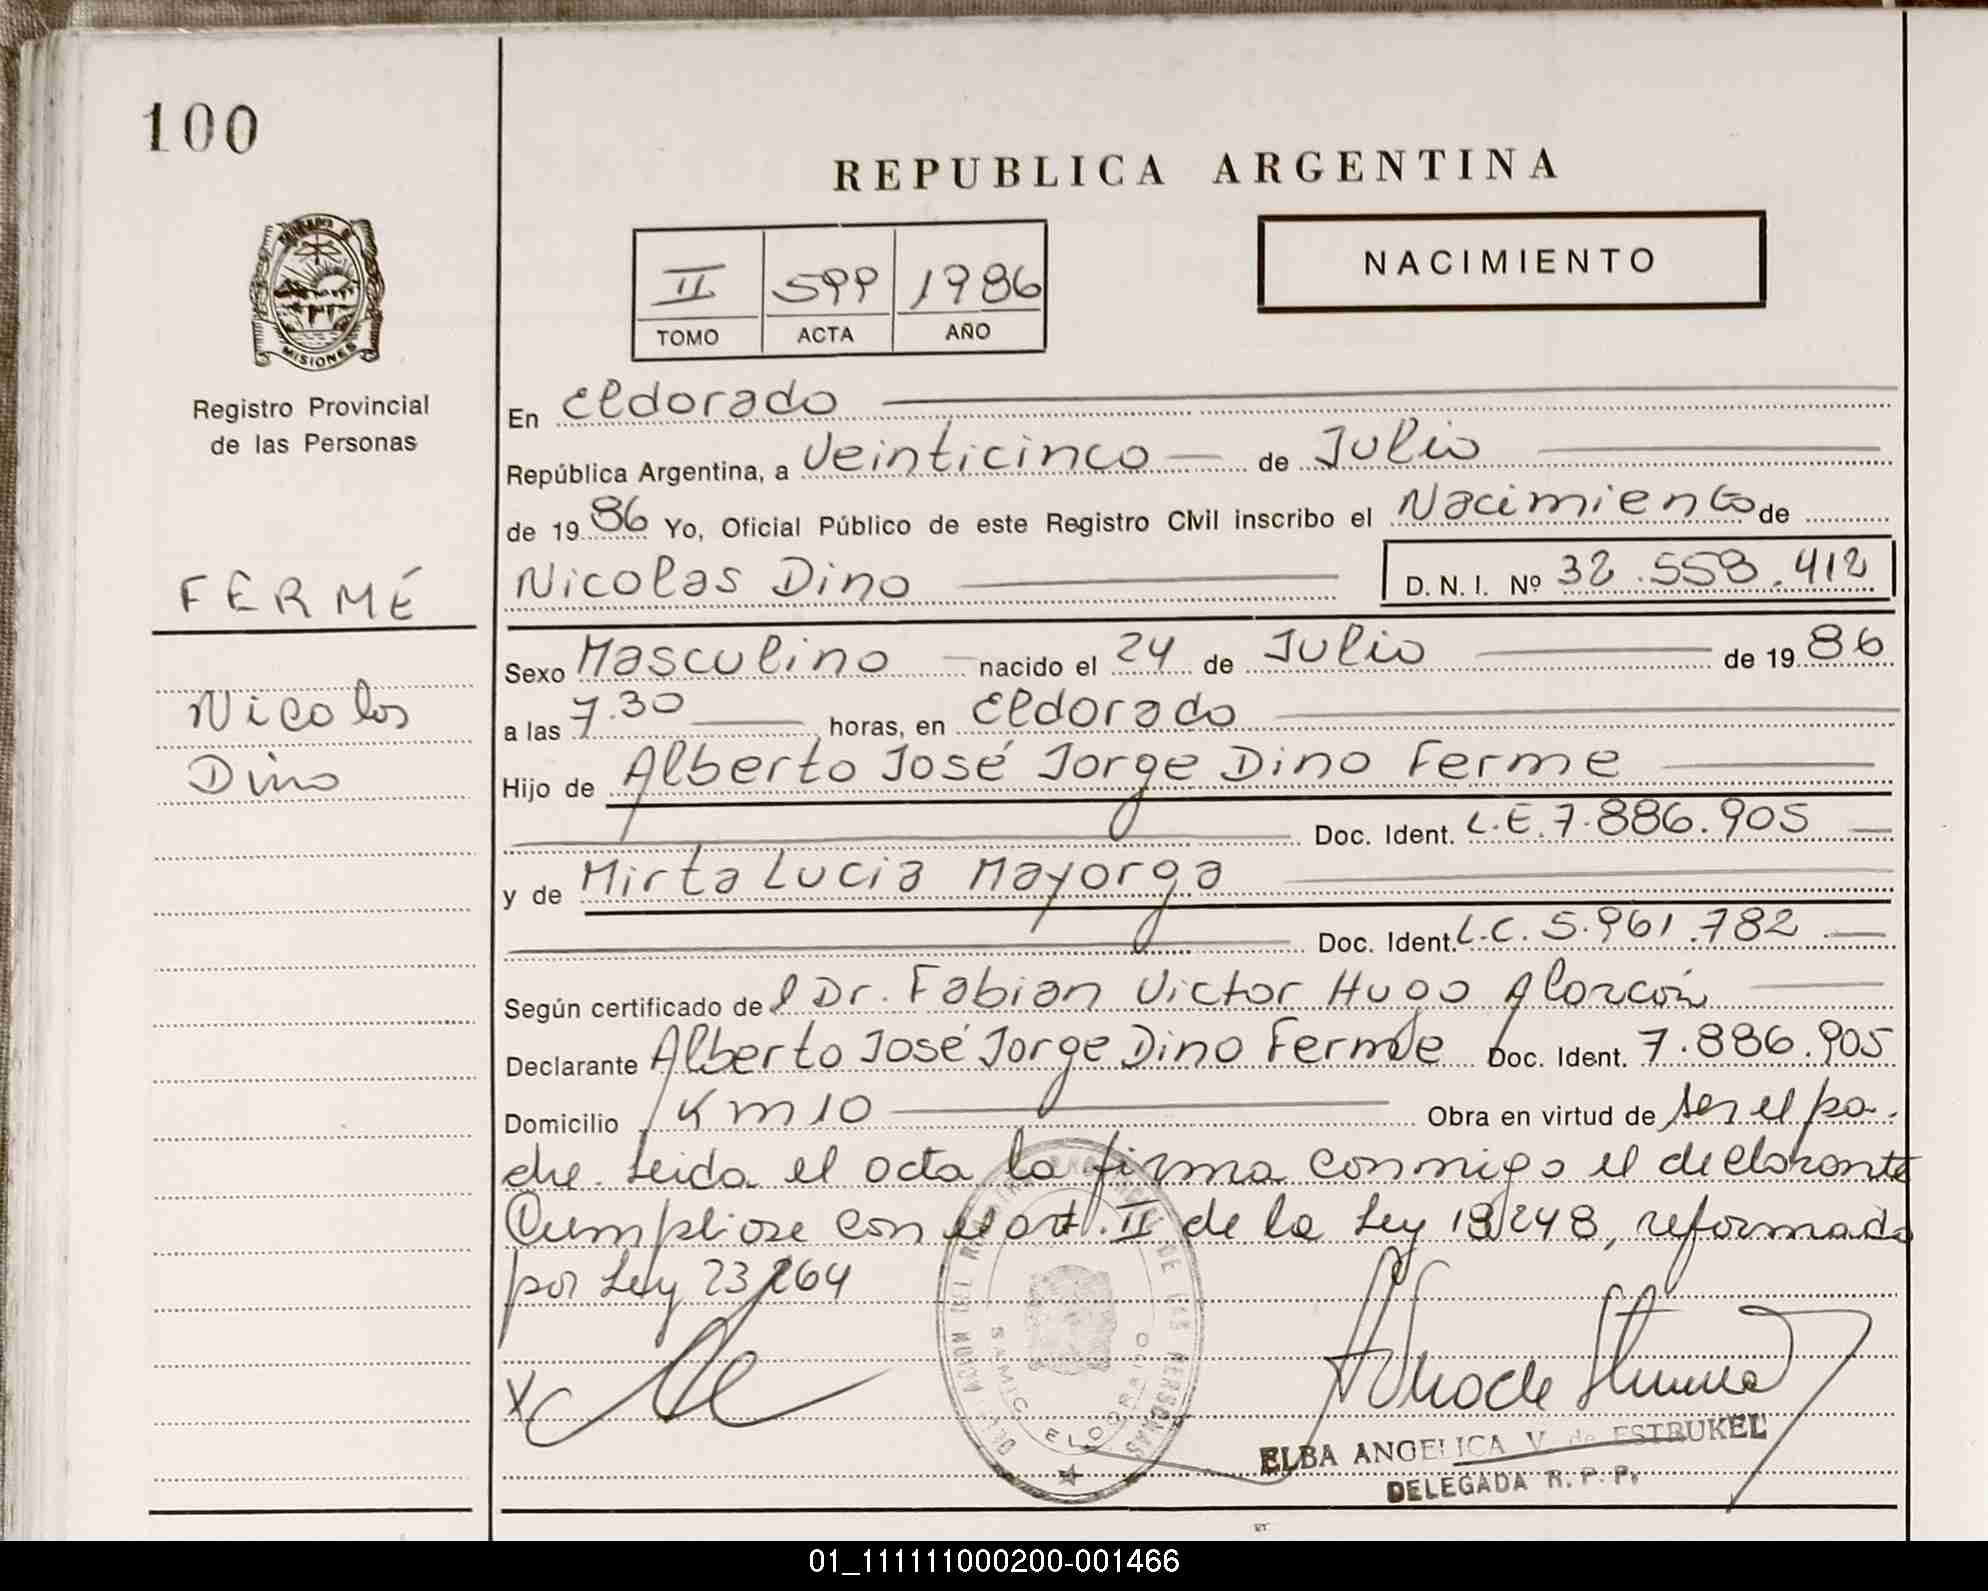 100
REPUBLICA ARGENTINA
II 599 1986
TOMO ACTA AÑO
NACIMIENTO
MISIONES
Registro Provincial
de las Personas
FERMÉ
Nicolas
Dino
En Eldorado
República Argentina, a Veinticinco de Julio
de 19 86 Yo, Oficial Público de este Registro Civil inscribo el Nacimiento de
Nicolas Dino D. N. I. Nº 32.558.412
Sexo Masculino nacido el 24 de Julio de 19 86
a las 7.30 horas, en Eldorado
Hijo de Alberto José Jorge Dino Ferme
Doc. Ident. L.E. 7.886.905
y de Mirta Lucia Mayorga
Doc. Ident. L.C. 5.961.782
Según certificado de l Dr. Fabian Victor Hugo Alarcón
Declarante Alberto José Jorge Dino Ferme Doc. Ident. 7.886.905
Domicilio Km 10 Obra en virtud de ser el pa-
dre. Leida el acta la firma conmigo el declarante
Cumpliose con el art. II de la Ley 18248, reformada
por Ley 23264
X
SAMIC ELDORADO
ELBA ANGELICA V. de ESTRUKEL
DELEGADA R. P. P.
01_111111000200-001466